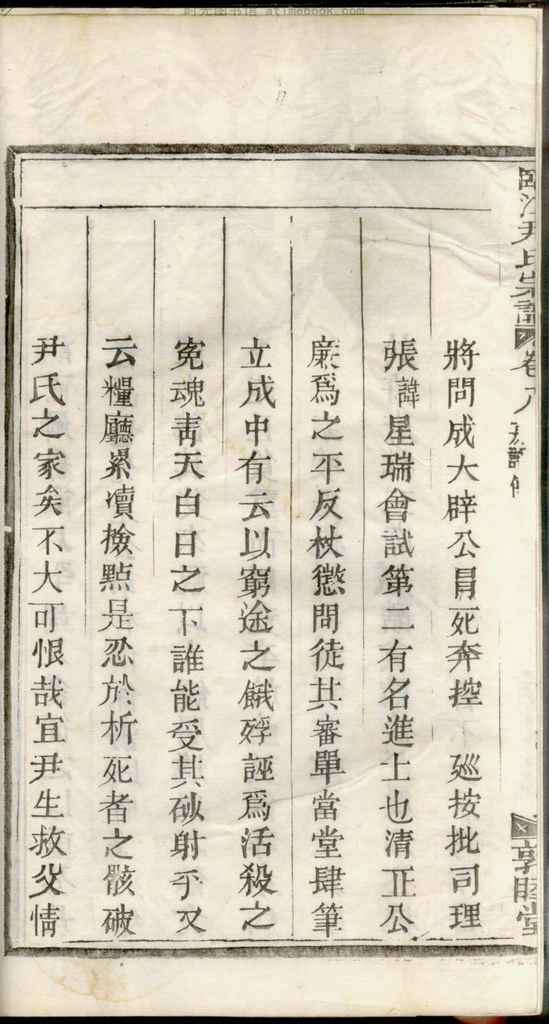 阿元图书馆 atimebook.com
將問成大辟公冒死奔控 廵按批司理
張諱星瑞會試第二有名進士也清正公
廉爲之平反杖懲問徒其審單當堂肆筆
立成中有云以窮途之餓殍誣爲活殺之
冤魂靑天白日之下誰能受其砂射乎又
云糧廳累瀆撿㸃是忍於析死者之骸破
尹氏之家矣不大可恨哉宜尹生救父情
尹氏宗譜 卷八
敦睦堂